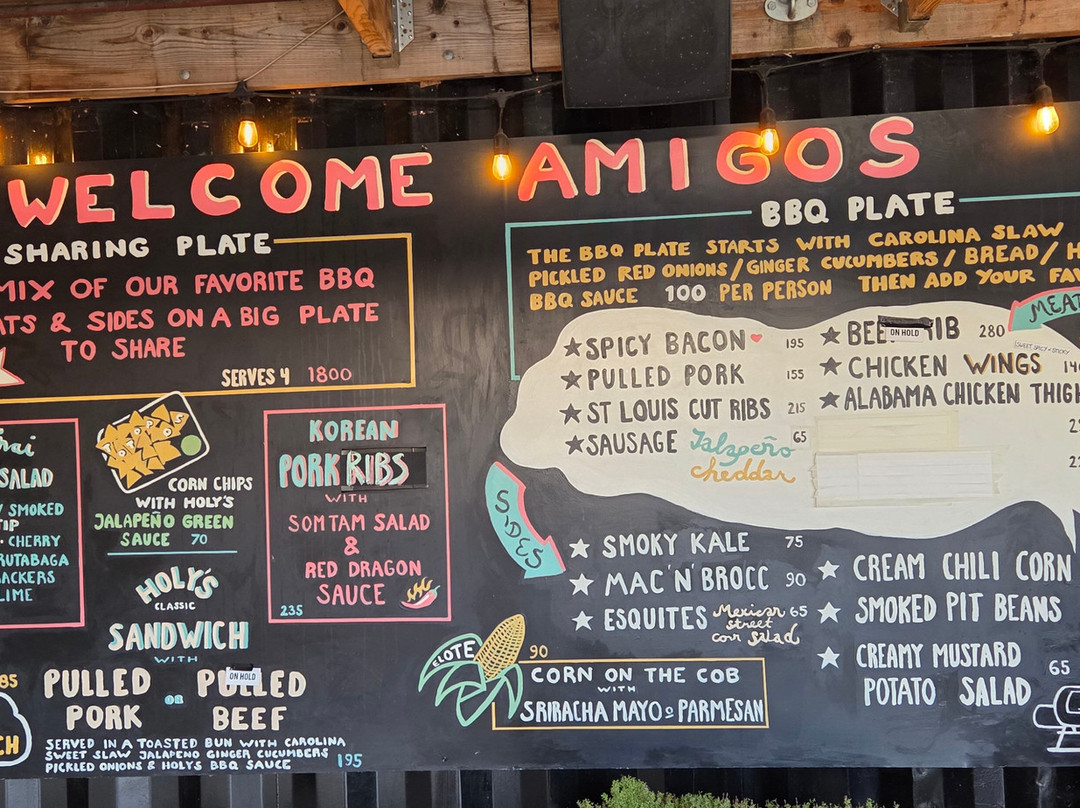 WELCOME AMIGOS
SHARING PLATE
MIX OF OUR FAVORITE BBQ
& SIDES ON A BIG PLATE
TO SHARE
SERVES 4 1800
SALAD
SMOKED
CHERRY
RUTABAGA
LIME
CORN CHIPS
WITH HOLY'S
JALAPEÑO GREEN
SAUCE 70
KOREAN
PORK RIBS
WITH
SOMTAM SALAD
&
RED DRAGON
SAUCE
235
HOLY'S
CLASSIC
SANDWICH
WITH
PULLED PORK
OR
PULLED BEEF
ON HOLD
SERVED IN A TOASTED BUN WITH CAROLINA
SWEET SLAW JALAPENO GINGER CUCUMBERS
PICKLED ONIONS & HOLY'S BBQ SAUCE 195
BBQ PLATE
THE BBQ PLATE STARTS WITH CAROLINA SLAW
PICKLED RED ONIONS/GINGER CUCUMBERS/BREAD/
BBQ SAUCE 100 PER PERSON THEN ADD YOUR
SPICY BACON 195
PULLED PORK 155
ST LOUIS CUT RIBS 215
SAUSAGE Jalapeño cheddar 65
BEEF RIB 280
ON HOLD
CHICKEN WINGS
ALABAMA CHICKEN
SIDES
SMOKY KALE 75
MAC'N'BROCC 90
ESQUITES Mexican street corn salad 65
CREAM CHILI CORN
SMOKED PIT BEANS
CREAMY MUSTARD
POTATO SALAD 65
ELOTE
90
CORN ON THE COB
WITH
SRIRACHA MAYO & PARMESAN